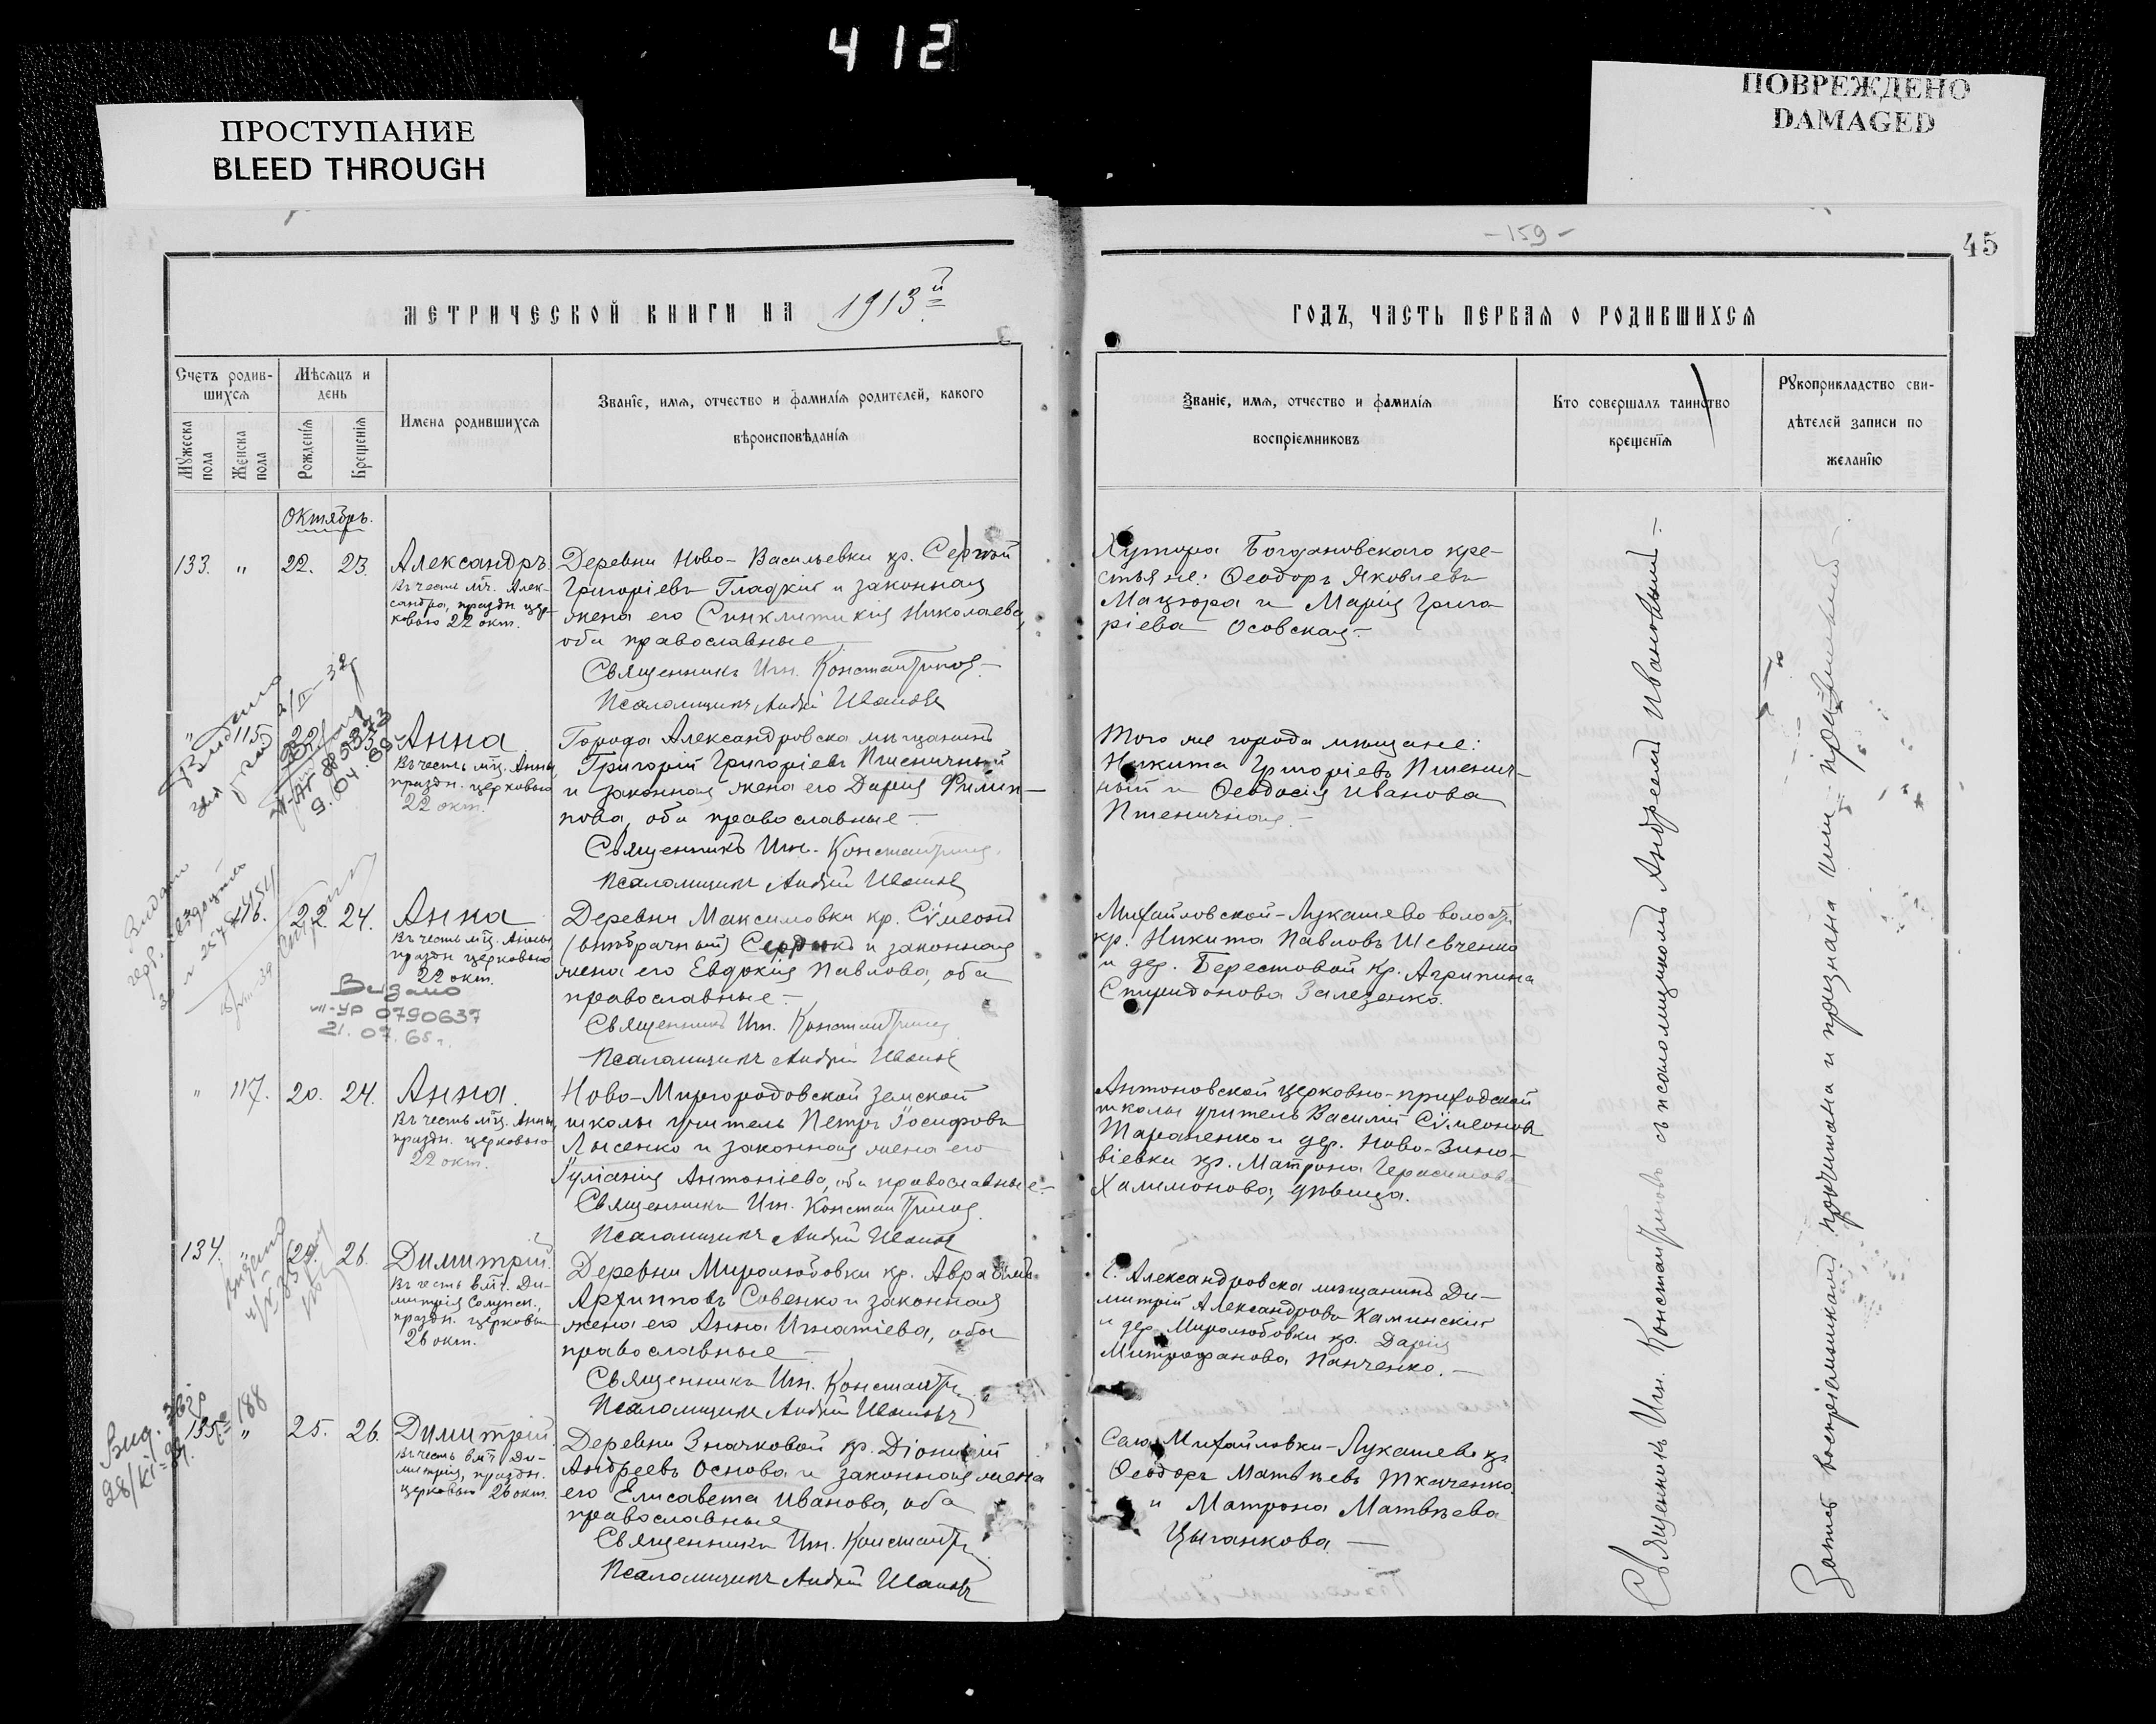 412
ПРОСТУПАНИЕ
BLEED THROUGH
ПОВРЕЖДЕНО
DAMAGED
- 159 -
45
МЕТРИЧЕСКОЙ КНИГИ НА 1913й
ГОДЪ, ЧАСТЬ ПЕРВАЯ О РОДИВШИХСЯ
Счетъ родив-
шихся
Мужеска пола
Женска пола
Мѣсяцъ и
день
Рожденія
Крещенія
Имена родившихся
Званіе, имя, отчество и фамилія родителей, какого
вѣроисповѣданія
Званіе, имя, отчество и фамилія
воспріемниковъ
Кто совершалъ таинство
крещенія
Рукоприкладство сви-
дѣтелей записи по
желанію
Октябрь.
133. " 22. 23. Александръ.
Въ честь мч. Алек-
сандра, праздн. цер-
ковью 22 окт.
Деревни Ново-Васильевки кр. Сергѣй
Григоріевъ Гладкій и законная
жена его Синклитикія Николаева,
оба православные
Священникъ Ин. Константиновъ
Псаломщикъ Андрей Ивановъ
Хутора Богдановскаго кре-
стьяне: Ѳеодоръ Яковлевъ
Мацюра и Марія Григо-
ріева Осовская.
" 115. 22. 23. Анна
Въ честь мц. Анны,
праздн. церковью
22 окт.
9.04.
Города Александровска мѣщанинъ
Григорій Григоріевъ Пшеничный
и законная жена его Дарія Филип-
пова, оба православные
Священникъ Ин. Константиновъ
Псаломщикъ Андрей Ивановъ
Того же города мѣщане:
Никита Григоріевъ Пшенич-
ный и Ѳеодосія Иванова
Пшеничная.
116. 22 24. Анна
Въ честь мц. Анны,
праздн. церковью
22 окт.
Видано
III-УР 0790637
21.07.65 г.
Деревни Максимовки кр. Сѵмеонъ
(второбрачный) и законная
жена его Евдокія Павлова, оба
православные
Священникъ Ин. Константиновъ
Псаломщикъ Андрей Ивановъ
Михайловской-Лукашево волости
кр. Никита Павловъ Шевченко
и дер. Берестовой кр. Агрипина
Спиридонова Залезенко.
" 117. 20. 24. Анна.
Въ честь мц. Анны,
праздн. церковью
22 окт.
Ново-Миргородовской земской
школы учитель Петръ Іосифовъ
Лысенко и законная жена его
Іуліанія Антоніева, оба православные
Священникъ Ин. Константиновъ
Псаломщикъ Андрей Ивановъ
Антоновской церковно-приходской
школы учитель Василій Сѵмеоновъ
Тараненко и дер. Ново-Зино-
віевки кр. Матрона Герасимова
Халимонова, дѣвица.
134. " 26. Димитрій.
Въ честь вмч. Ди-
митрія Солунск.,
праздн. церковью
26 окт.
Деревни Миролюбовки кр. Авраамъ
Архипповъ Совенко и законная
жена его Анна Игнатіева, оба
православные
Священникъ Ин. Константиновъ
Псаломщикъ Андрей Ивановъ
Г. Александровска мѣщанинъ Ди-
митрій Александровъ Каминскій
и дер. Миролюбовки кр. Дарія
Митрофанова Панченко.
135. " 25. 26. Димитрій.
Въ честь вмч. Ди-
митрія, праздн.
церковью 26 окт.
Деревни Значковой кр. Діонисій
Андреевъ Основа и законная жена
его Елисавета Иванова, оба
православные
Священникъ Ин. Константиновъ
Псаломщикъ Андрей Ивановъ
Села Михайловки-Лукашево кр.
Ѳеодоръ Матвѣевъ Ткаченко
и Матрона Матвѣева
Цыганкова
Священникъ Ин. Константиновъ съ псаломщикомъ Андреемъ Ивановымъ
воспріемниками прочитана и признана ими